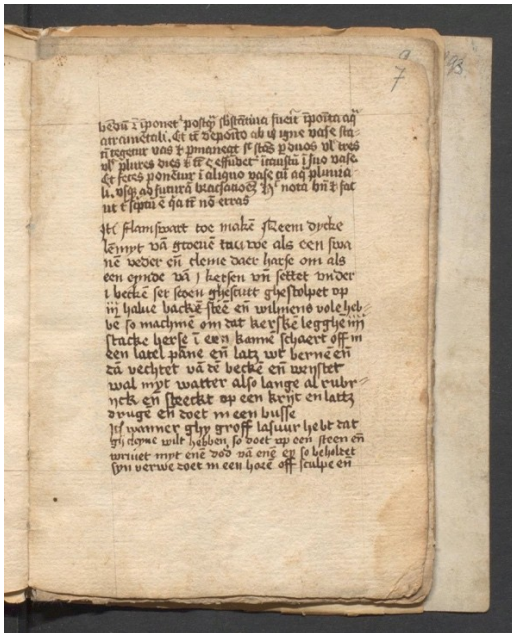 9
7
93
bēdū ⁊ īponet᷒ postq̄ sb̄stātīua fuerit īposita aq̄
atramētali. Et tē deposito ab igne vase sta-
ti tegetur vas ⁊ p̄maneat sic stās p̄ duos vl' tres
vl' plures dies ⁊ tē effudet᷒ īcaustū ī suo vase.
Et feces ponētur ī aliquo vase cū aq̄ pluuia-
li. vsq̄ ad futurā nota bn̄ ⁊ fac
ut scptū ē nō erras
Itē flamswart toe makē Neem dycke
lēmyt vā als een swa
nē veder en̄ cleme daer harse om als
een eynde vā j ketsen vn̄ settet vnder
j beckē set scoen ghescutt ghestolpet op
iij halue backēsteē en̄ wilmens vole heb-
be so machmē om dat kerskē legghē iiij
stucke herse ī een kannē schaert off in
een latel pāne en̄ latz wt bernēen̄
dā vechtet vā dē beckē en̄ wrijstet
wal myt watter also lange al rubr-
ijck en̄ steeckt op een krijt en lattz
druge en̄ doet in een busse
Itē wanner ghy groff lasuur hebt dat
ghi cleyne wilt hebben so doet op een steen en̄
wriuet myt enē dod vā enē ey so beholdet
syn verwe doet in een horē off sculpe en̄